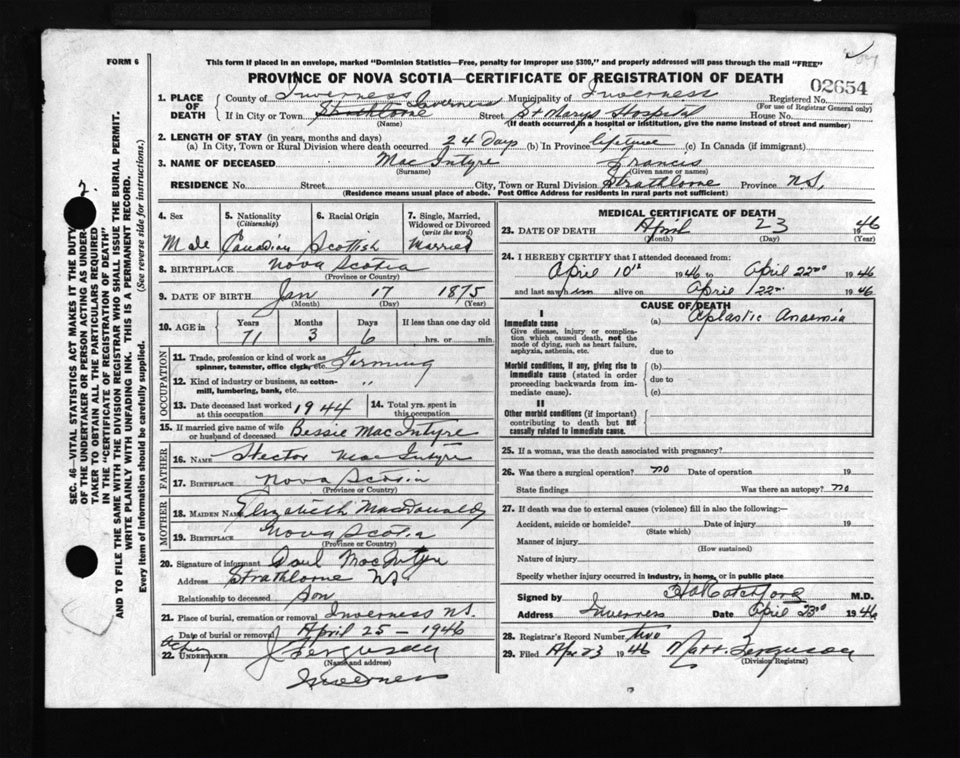 FORM 6
This form if placed in an envelope, marked "Dominion Statistics—Free, penalty for improper use $300," and properly addressed will pass through the mail "FREE"
PROVINCE OF NOVA SCOTIA—CERTIFICATE OF REGISTRATION OF DEATH
02654
1. PLACE OF DEATH
County of Inverness Municipality of Inverness Registered No.
(For use of Registrar General only)
If in City or Town Strathlorne Inverness Street St Marys Hospital House No.
(Name) (If death occurred in a hospital or institution, give the name instead of street and number)
2. LENGTH OF STAY (in years, months and days)
(a) In City, Town or Rural Division where death occurred 24 Days (b) In Province lifetime (c) In Canada (if immigrant)
3. NAME OF DECEASED Mac Intyre Francis
(Surname) (Given name or names)
RESIDENCE No. Street City, Town or Rural Division Strathlorne Province N.S.
(Residence means usual place of abode. Post Office Address for residents in rural parts not sufficient)
4. Sex
Male
5. Nationality
(Citizenship)
Canadian
6. Racial Origin
Scottish
7. Single, Married, Widowed or Divorced
(write the word)
Married
8. BIRTHPLACE Nova Scotia
(Province or Country)
9. DATE OF BIRTH Jan 17 1875
(Month) (Day) (Year)
10. AGE in Years Months Days If less than one day old
71 3 6 hrs. or min.
OCCUPATION
11. Trade, profession or kind of work as spinner, teamster, office clerk, etc. Farming
12. Kind of industry or business, as cotton-mill, lumbering, bank, etc. "
13. Date deceased last worked at this occupation 1944
14. Total yrs. spent in this occupation
15. If married give name of wife or husband of deceased Bessie MacIntyre
FATHER
16. NAME Hector MacIntyre
17. BIRTHPLACE Nova Scotia
(Province or Country)
MOTHER
18. MAIDEN NAME Elizabeth MacDonald
19. BIRTHPLACE Nova Scotia
(Province or Country)
20. Signature of informant Paul MacIntyre
Address Strathlorne NS
Relationship to deceased Son
21. Place of burial, cremation or removal Inverness N.S.
Date of burial or removal April 25 – 1946
22. UNDERTAKER J Ferguson
(Name and address)
Inverness
MEDICAL CERTIFICATE OF DEATH
23. DATE OF DEATH April 23 1946
(Month) (Day) (Year)
24. I HEREBY CERTIFY that I attended deceased from:
April 10th 1946 to April 22nd 1946
and last saw him alive on April 22nd 1946
CAUSE OF DEATH
I
Immediate cause (a) Aplastic Anaemia
Give disease, injury or complication which caused death, not the mode of dying, such as heart failure, asphyxia, asthenia, etc.
due to
Morbid conditions, if any, giving rise to immediate cause (stated in order proceeding backwards from immediate cause).
(b)
due to
(c)
II
Other morbid conditions (if important) contributing to death but not causally related to immediate cause.
25. If a woman, was the death associated with pregnancy?
26. Was there a surgical operation? no Date of operation 19
State findings Was there an autopsy? no
27. If death was due to external causes (violence) fill in also the following:—
Accident, suicide or homicide? Date of injury 19
(State which)
Manner of injury
(How sustained)
Nature of injury
Specify whether injury occurred in industry, in home, or in public place
Signed by M.D.
Address Inverness Date April 23rd 1946
28. Registrar's Record Number two
29. Filed Apr 23 1946 Matt. Ferguson
(Division Registrar)
SEC. 46—VITAL STATISTICS ACT MAKES IT THE DUTY
OF THE UNDERTAKER OR PERSON ACTING AS UNDER-
TAKER TO OBTAIN ALL THE PARTICULARS REQUIRED
IN THE "CERTIFICATE OF REGISTRATION OF DEATH"
AND TO FILE THE SAME WITH THE DIVISION REGISTRAR WHO SHALL ISSUE THE BURIAL PERMIT.
WRITE PLAINLY WITH UNFADING INK. THIS IS A PERMANENT RECORD.
Every item of information should be carefully supplied. (See reverse side for instructions.)